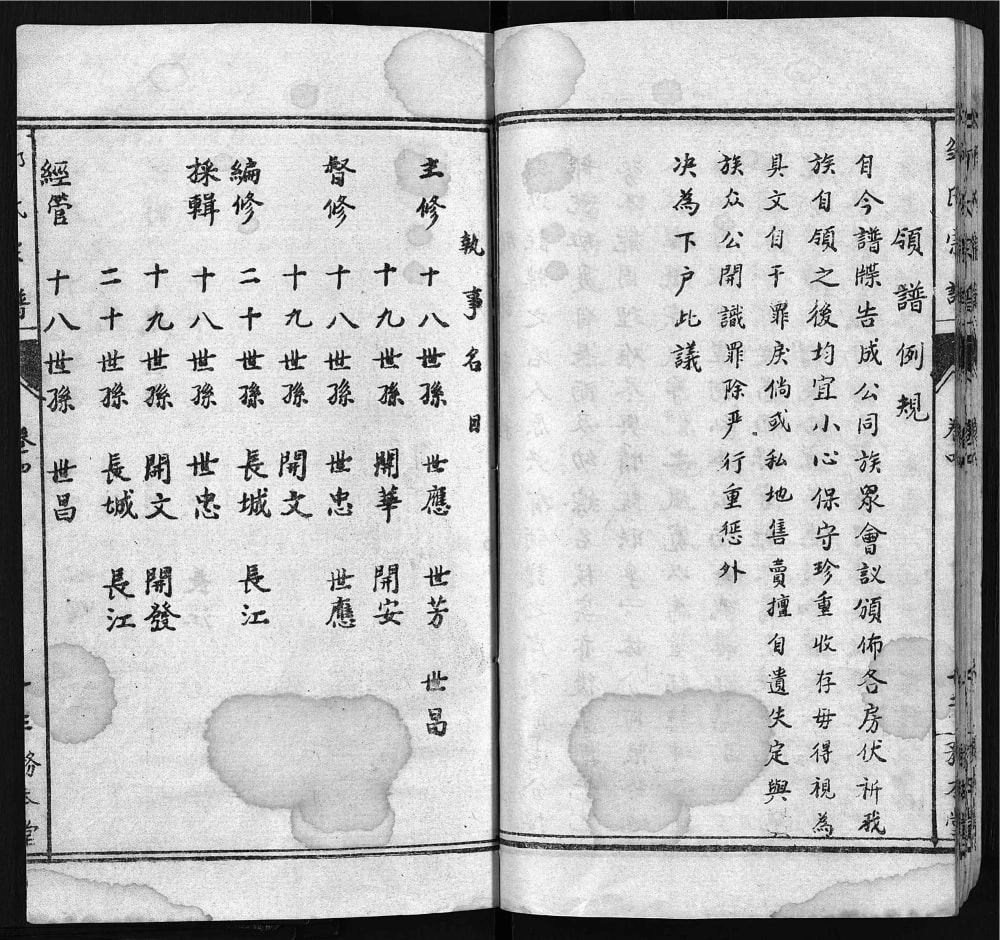 領譜例規
自今譜牒告成公同族眾會議頒佈各房伏祈我
族自領之後均宜小心保守珍重收存毋得視為
具文自干罪戾倘或私地售賣擅自遺失定與
族众公開識罪除严行重惩外
决為下户此議
執事名目
主修 十八世孫 世應 世芳 世昌
十九世孫 開華 開安
督修 十八世孫 世忠 世應
十九世孫 開文
編修 二十世孫 長城 長江
採輯 十八世孫 世忠
十九世孫 開文 開發
二十世孫 長城 長江
經管 十八世孫 世昌
氏宗譜 卷四